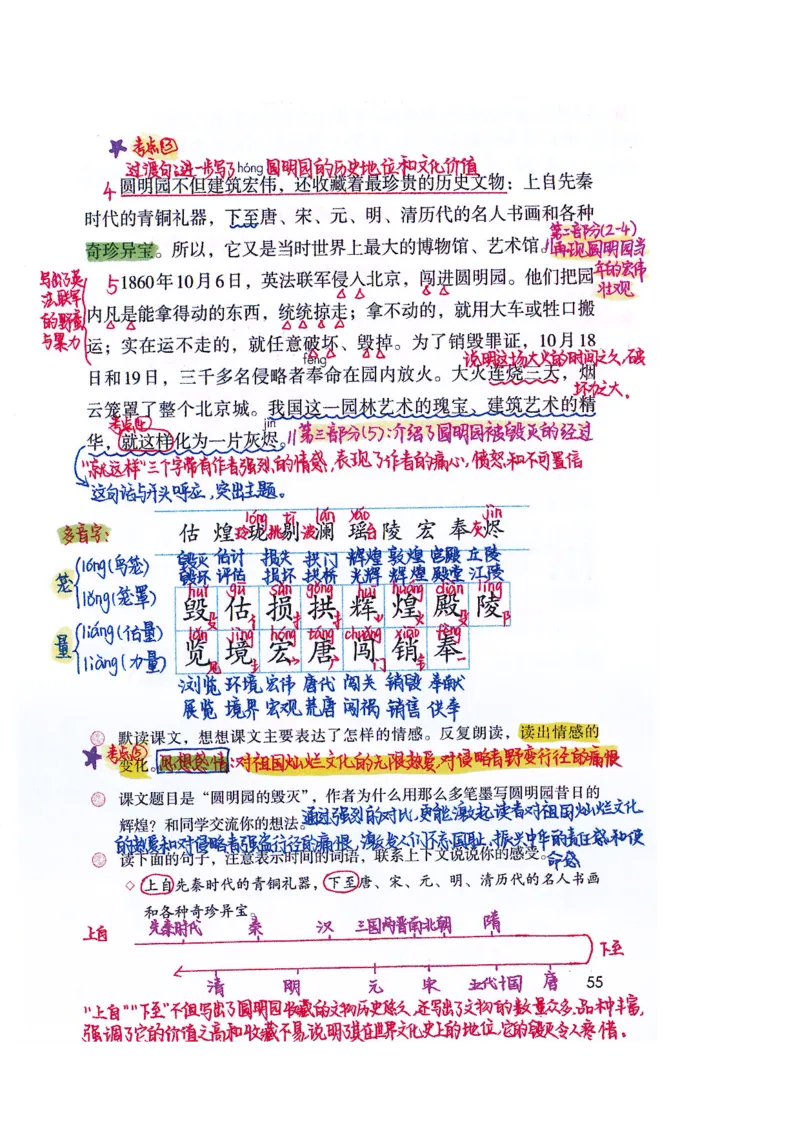 考点③
过渡句:进一步写了圆明园的历史地位和文化价值
hóng
4 圆明园不但建筑宏伟，还收藏着最珍贵的历史文物：上自先秦
时代的青铜礼器，下至唐、宋、元、明、清历代的名人书画和各种
第二部分(2-4)
奇珍异宝。所以，它又是当时世界上最大的博物馆、艺术馆。//再现圆明园当
年的宏伟
壮观
写出了英
法联军
的野蛮
与暴力
5 1860年10月6日，英法联军侵入北京，闯进圆明园。他们把园
内凡是能拿得动的东西，统统掠走；拿不动的，就用大车或牲口搬
运；实在运不走的，就任意破坏、毁掉。为了销毁罪证，10月18
fèng
说明这场大火的时间之久,破
坏力之大。
日和19日，三千多名侵略者奉命在园内放火。大火连烧三天，烟
云笼罩了整个北京城。我国这一园林艺术的瑰宝、建筑艺术的精
考点④
jìn
华，就这样化为一片灰烬。//第三部分(5):介绍了圆明园被毁灭的经过
"就这样"三个字带有作者强烈的情感,表现了作者的痛心,愤怒和不可置信
这句话与开头呼应,突出主题。
多音字:
笼 lóng(鸟笼)
lǒng(笼罩)
量 liáng(估量)
liàng(力量)
lóng tī lán yáo jìn
估 煌 玲珑 挑剔 波澜 瑶台 陵 宏 奉 灰烬
毁灭 估计 损失 拱门 辉煌 敦煌 宫殿 丘陵
毁坏 评估 损坏 拱桥 光辉 辉煌 殿堂 江陵
huǐ gū sǔn gǒng huī huáng diàn líng
毁 估 损 拱 辉 煌 殿 陵
lǎn jìng hóng táng chuǎng xiāo fèng
览 境 宏 唐 闯 销 奉
浏览 环境 宏伟 唐代 闯关 销毁 奉献
展览 境界 宏观 荒唐 闯祸 销售 供奉
默读课文，想想课文主要表达了怎样的情感。反复朗读，读出情感的
考点⑤
变化。思想感情:对祖国灿烂文化的无限热爱,对侵略者野蛮行径的痛恨
课文题目是“圆明园的毁灭”，作者为什么用那么多笔墨写圆明园昔日的
辉煌？和同学交流你的想法。通过强烈的对比,更能激起读者对祖国灿烂文化
的热爱和对侵略者强盗行径的痛恨,激发人们不忘国耻,振兴中华的责任感和使
命感
读下面的句子，注意表示时间的词语，联系上下文说说你的感受。
◇ 上自先秦时代的青铜礼器，下至唐、宋、元、明、清历代的名人书画
和各种奇珍异宝。
上自 先秦时代 秦 汉 三国两晋南北朝 隋
下至
清 明 元 宋 五代十国 唐
55
"上自""下至"不但写出了圆明园收藏的文物历史悠久,还写出了文物的数量众多,品种丰富,
强调了它的价值之高和收藏不易,说明了其在世界文化史上的地位,它的毁灭令人疼惜。